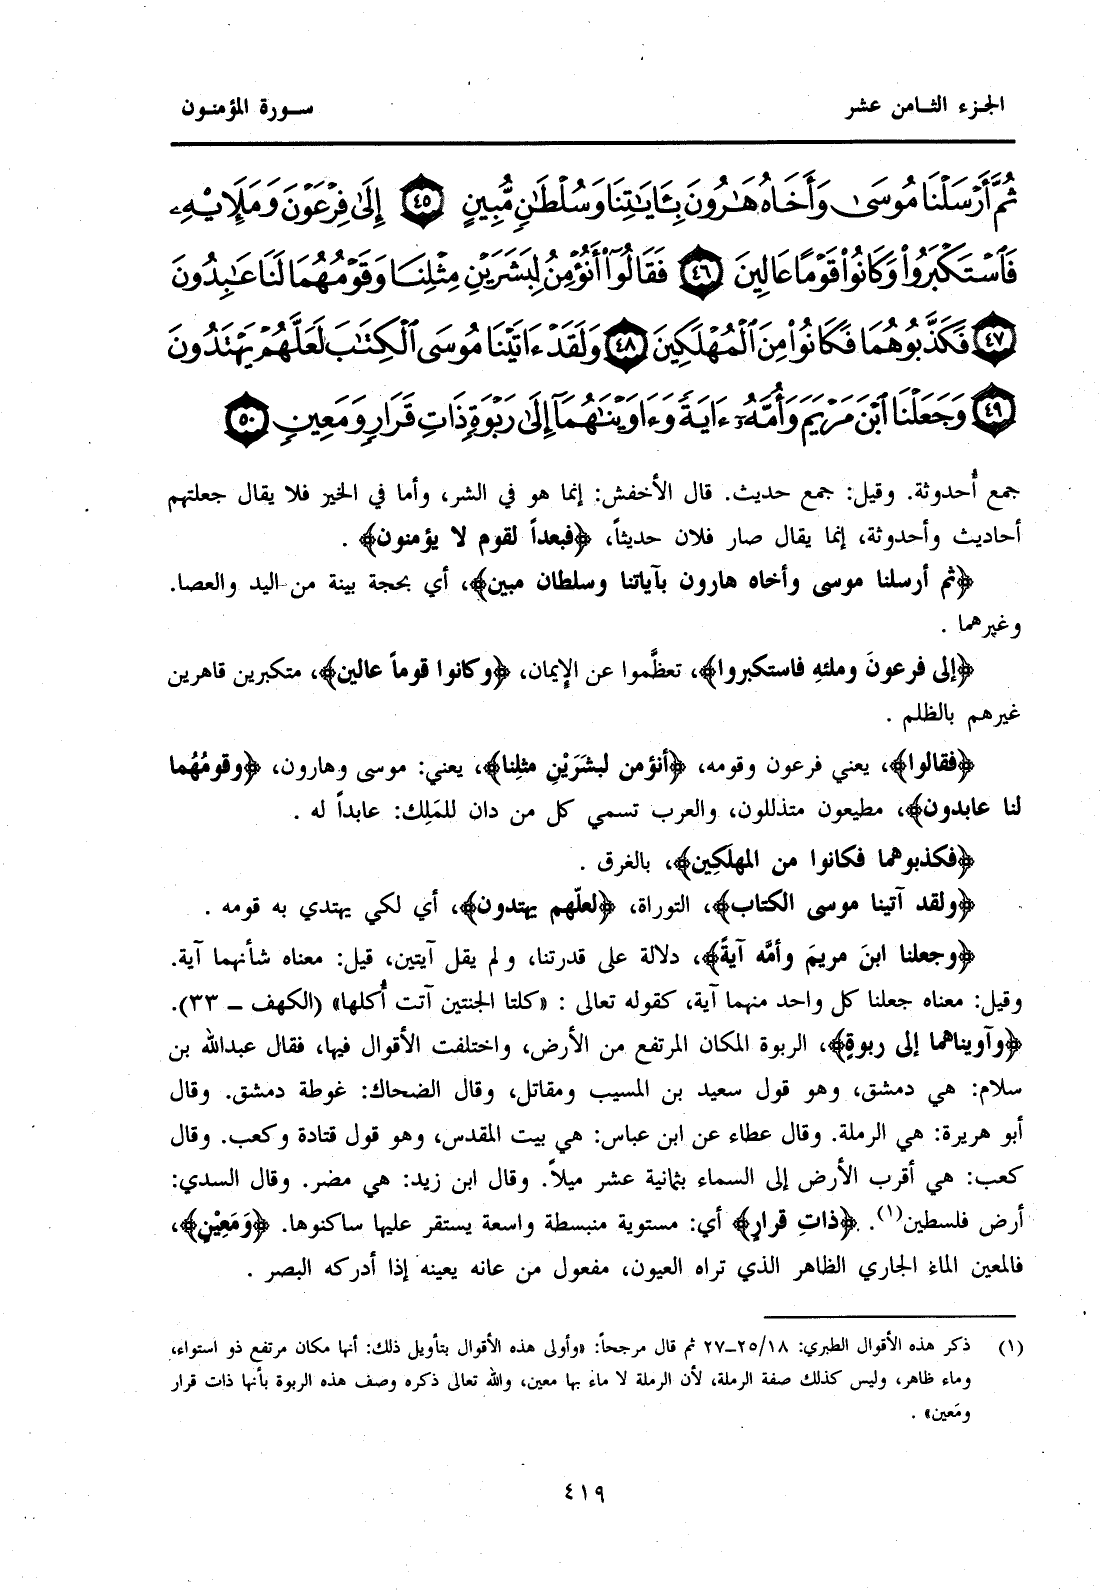 الجزء الثامن عشر
سورة المؤمنون
ثُمَّ أَرْسَلْنَا مُوسَىٰ وَأَخَاهُ هَٰرُونَ بِـَٔايَٰتِنَا وَسُلْطَٰنٍ مُّبِينٍ ٤٥ إِلَىٰ فِرْعَوْنَ وَمَلَإِي۟هِۦ
فَٱسْتَكْبَرُوا۟ وَكَانُوا۟ قَوْمًا عَالِينَ ٤٦ فَقَالُوٓا۟ أَنُؤْمِنُ لِبَشَرَيْنِ مِثْلِنَا وَقَوْمُهُمَا لَنَا عَٰبِدُونَ
٤٧ فَكَذَّبُوهُمَا فَكَانُوا۟ مِنَ ٱلْمُهْلَكِينَ ٤٨ وَلَقَدْ ءَاتَيْنَا مُوسَى ٱلْكِتَٰبَ لَعَلَّهُمْ يَهْتَدُونَ
٤٩ وَجَعَلْنَا ٱبْنَ مَرْيَمَ وَأُمَّهُۥٓ ءَايَةً وَءَاوَيْنَٰهُمَآ إِلَىٰ رَبْوَةٍ ذَاتِ قَرَارٍ وَمَعِينٍ ٥٠
جمع أُحدوثة. وقيل: جمع حديث. قال الأخفش: إنما هو في الشر، وأما في الخير فلا يقال جعلتهم
أحاديث وأحدوثة، إنما يقال صار فلان حديثاً، ﴿فبعداً لقوم لا يؤمنون﴾ .
﴿ثم أرسلنا موسى وأخاه هارون بآياتنا وسلطان مبين﴾، أي بحجة بينة من اليد والعصا.
وغيرهما .
﴿إلى فرعونَ وملئهِ فاستكبروا﴾، تعظَّموا عن الإيمان، ﴿وكانوا قوماً عالين﴾، متكبرين قاهرين
غيرهم بالظلم .
﴿فقالوا﴾، يعني فرعون وقومه، ﴿أنؤمن لبشَرَيْنِ مثلِنا﴾، يعني: موسى وهارون، ﴿وقومُهُما
لنا عابدون﴾، مطيعون متذللون، والعرب تسمي كل من دان للمَلِك: عابداً له .
﴿فكذبوهما فكانوا من المهلَكِين﴾، بالغرق .
﴿ولقد آتينا موسى الكتاب﴾، التوراة، ﴿لعلّهم يهتدون﴾، أي لكي يهتدي به قومه .
﴿وجعلنا ابنَ مريمَ وأمَّه آيةً﴾، دلالة على قدرتنا، ولم يقل آيتين، قيل: معناه شأنهما آية.
وقيل: معناه جعلنا كل واحد منهما آية، كقوله تعالى : «كلتا الجنتين آتت أُكلها» (الكهف ــ ٣٣).
﴿وآويناهما إلى ربوةٍ﴾، الربوة المكان المرتفع من الأرض، واختلفت الأقوال فيها، فقال عبدالله بن
سلام: هي دمشق، وهو قول سعيد بن المسيب ومقاتل، وقال الضحاك: غوطة دمشق. وقال
أبو هريرة: هي الرملة. وقال عطاء عن ابن عباس: هي بيت المقدس، وهو قول قتادة وكعب. وقال
كعب: هي أقرب الأرض إلى السماء بثمانية عشر ميلاً. وقال ابن زيد: هي مضر. وقال السدي:
أرض فلسطين(١). ﴿ذاتِ قرارٍ﴾ أي: مستوية منبسطة واسعة يستقر عليها ساكنوها. ﴿وَمَعِيْنٍ﴾،
فالمعين الماء الجاري الظاهر الذي تراه العيون، مفعول من عانه يعينه إذا أدركه البصر .
(١) ذكر هذه الأقوال الطبري: ١٨/٢٥ــ٢٧ ثم قال مرجحاً: «وأولى هذه الأقوال بتأويل ذلك: أنها مكان مرتفع ذو استواء،
وماء ظاهر، وليس كذلك صفة الرملة، لأن الرملة لا ماء بها معين، والله تعالى ذكره وصف هذه الربوة بأنها ذات قرار
ومَعين» .
٤١٩